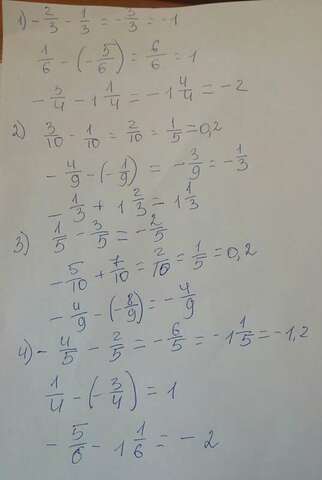 1) - 2/3 - 1/3 = - 3/3 = -1
1/6 - (- 5/6) = 6/6 = 1
- 3/4 - 1 1/4 = -1 4/4 = -2
2) 3/10 - 1/10 = 2/10 = 1/5 = 0,2
- 4/9 - (- 1/9) = - 3/9 = - 1/3
- 1/3 + 1 2/3 = 1 1/3
3) 1/5 - 3/5 = - 2/5
- 5/10 + 7/10 = 2/10 = 1/5 = 0,2
- 4/9 - (- 8/9) = - 4/9
4) - 4/5 - 2/5 = - 6/5 = -1 1/5 = -1,2
1/4 - (- 3/4) = 1
- 5/6 - 1 1/6 = - 2